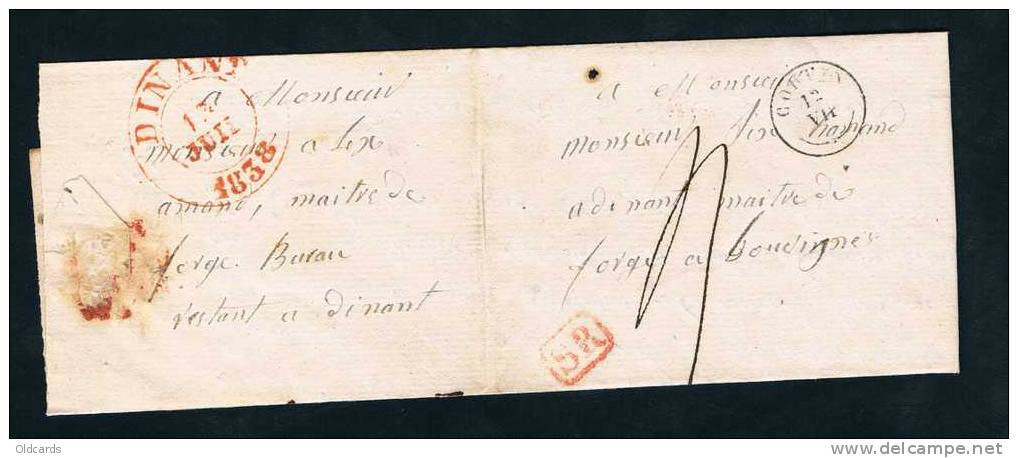 DINANT
13
JUIL
1838
a Monsieur
monsieur a Lix
amand, maitre de
forge. Bureau
restant a dinant
a Monsieur
monsieur, Lix hamand
a dinant maitre de
forge a bouvignes
12
VII
SR
Oldcards
delcampe.net